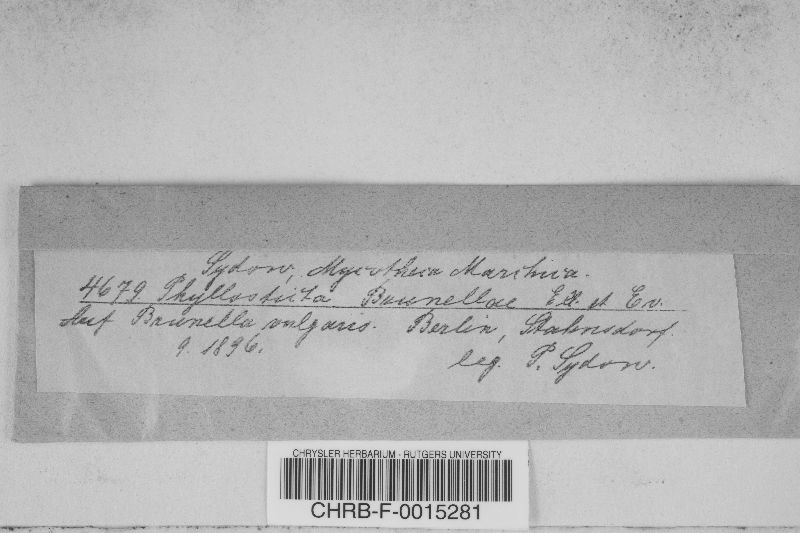 Sydow, Mycotheca Marchica.
4679 Phyllosticta Brunellae Ell. et Ev.
Auf Brunella vulgaris. Berlin, Stahnsdorf.
9. 1896. leg. P. Sydow.
CHRYSLER HERBARIUM - RUTGERS UNIVERSITY
CHRB-F-0015281